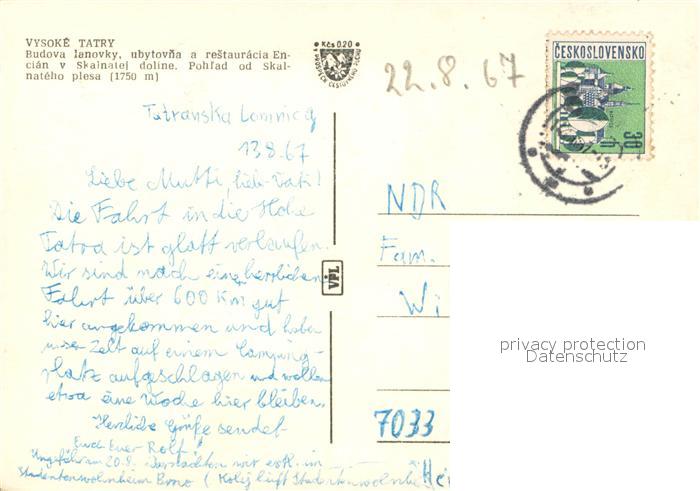 VYSOKÉ TATRY
Budova lanovky, ubytovňa a reštaurácia En-
cián v Skalnatej doline. Pohľad od Skal-
natého plesa (1750 m)
Kčs 0,20
22.8.67
ČESKOSLOVENSKO
30
h
Tatranska Lomnica
13.8.67
Liebe Mutti, lieb. Vati!
Die Fahrt in die Hohe
Tatra ist glatt verlaufen.
Wir sind nach einer herrlichen
Fahrt über 600 Km gut
hier angekommen und haben
unser Zelt auf einem Camping-
platz aufgeschlagen und wollen
etwa eine Woche hier bleiben.
Herzliche Grüße sendet
Euch Euer Rolf!
Ungefähr am 20.8. wir evtl. in
Studentenwohnheim Brno (
NDR
Fam.
Wi
VPL
7033
privacy protection
Datenschutz